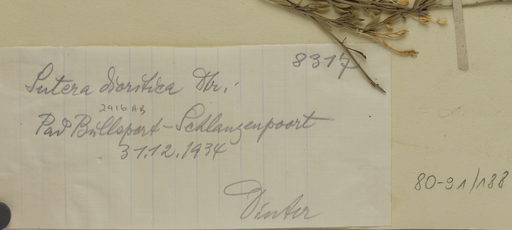 8317
Sutera dioritica Dtr.
2416 AB
Pad Büllsport-Schlangenpoort
31.12.1934
Dinter
80-91/188